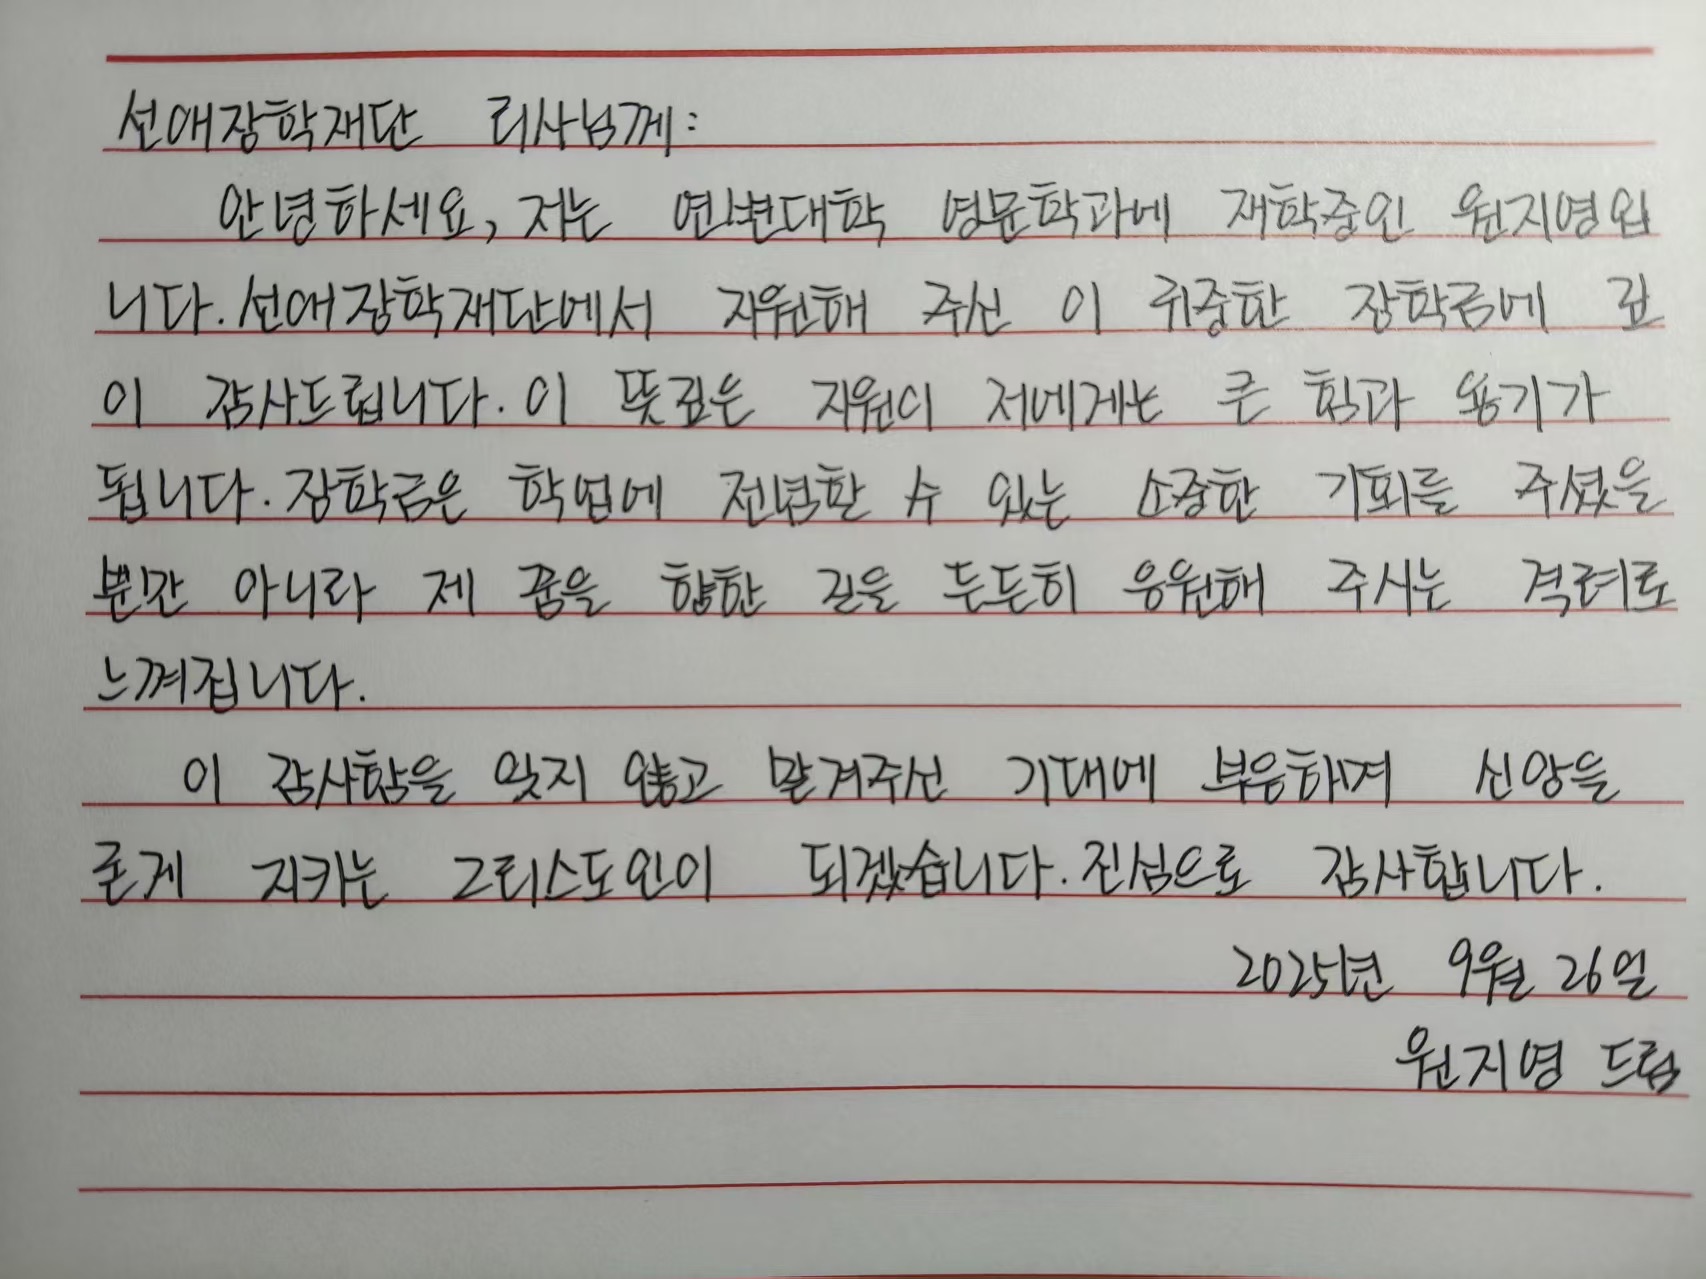 선애장학재단 리사님께:
안녕하세요, 저는 연변대학 영문학과에 재학중인 원지영입
니다. 선애장학재단에서 지원해 주신 이 귀중한 장학금에 깊
이 감사드립니다. 이 뜻깊은 지원이 저에게는 큰 힘과 용기가
됩니다. 장학금은 학업에 전념할 수 있는 소중한 기회를 주셨을
뿐만 아니라 제 꿈을 향한 길을 든든히 응원해 주시는 격려로
느껴집니다.
이 감사함을 잊지 않고 맡겨주신 기대에 부응하며 신앙을
굳게 지키는 그리스도인이 되겠습니다. 진심으로 감사합니다.
2025년 9월 26일
원지영 드림